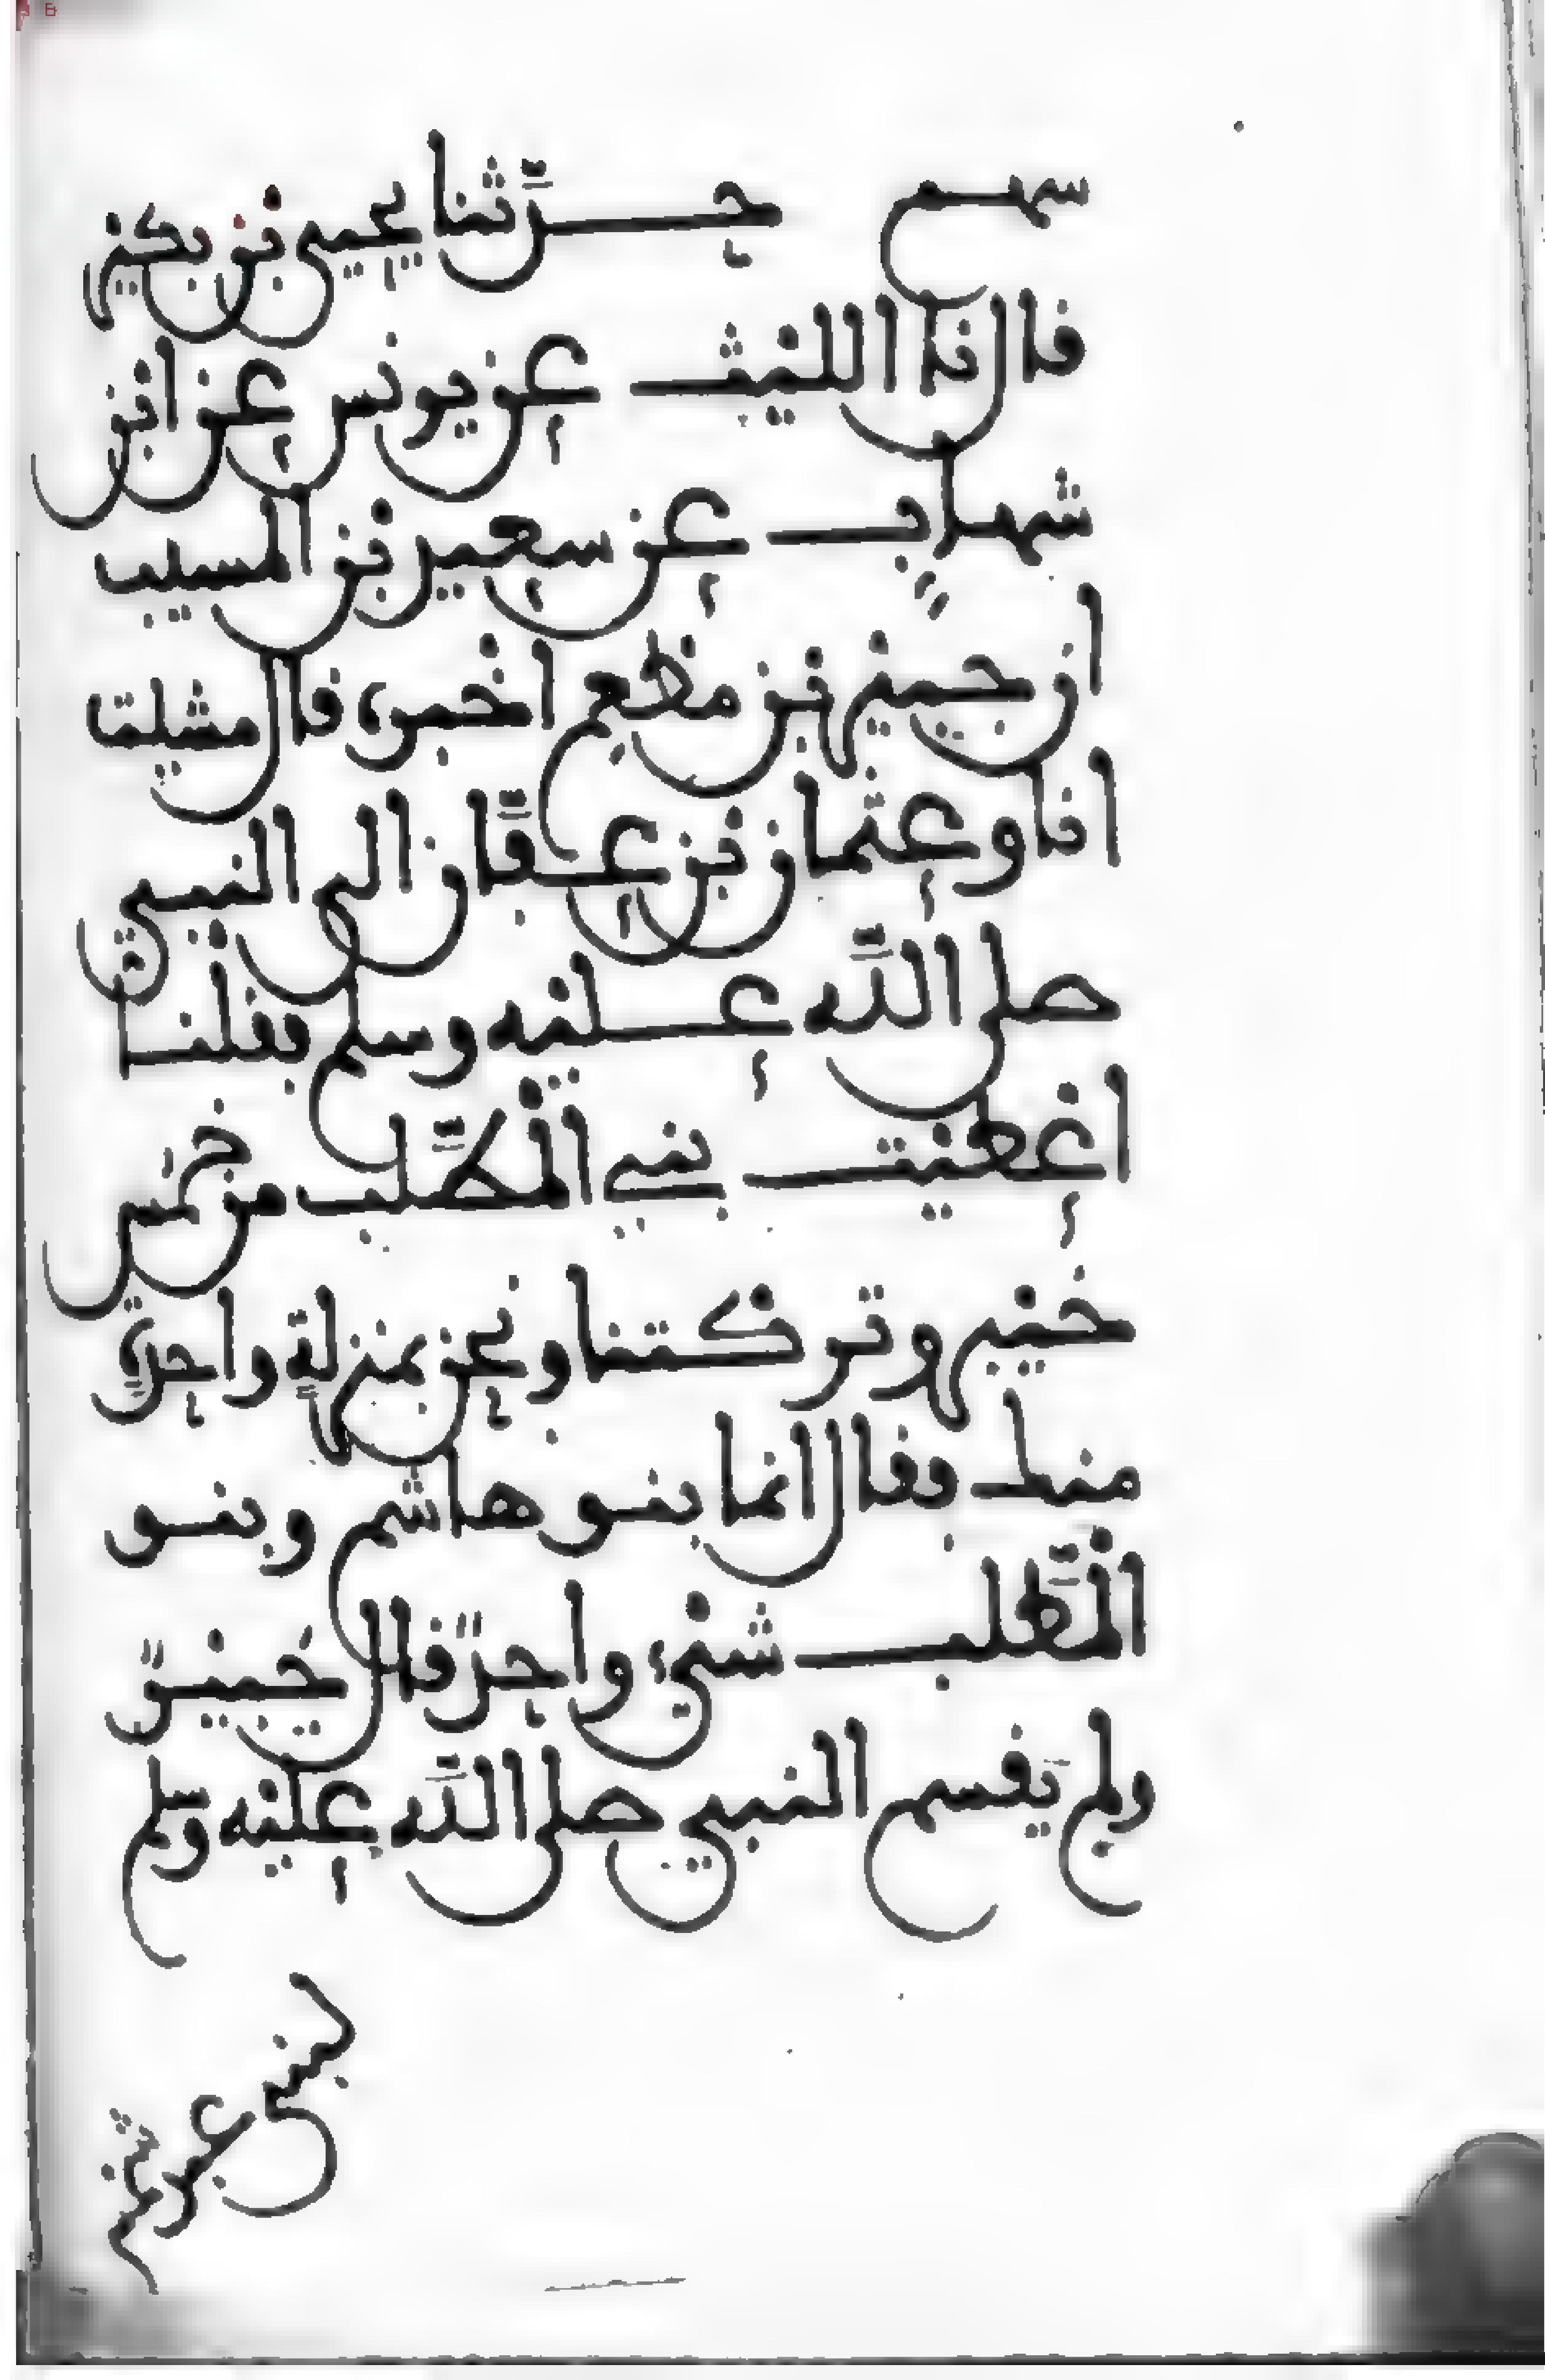 سهم حدّثنا يحيى بن بكير
قال نا الليث عن يونس عن ابن
شهاب عن سعيد بن المسيب
ان جبير بن مطعم اخبره قال مشيت
انا وعثمان بن عفّان الى النبي
صلى الله عليه وسلم فقلنا
اعطيت بني المطّلب من خمس
خيبر وتركتنا ونحن بمنزلةٍ واحدةٍ
منك فقال انما بنو هاشم وبنو
المطّلب شيء واحدٌ قال جبيرٌ
ولم يَقسم النبي صلى الله عليه وسلم
لبني عبد شمس